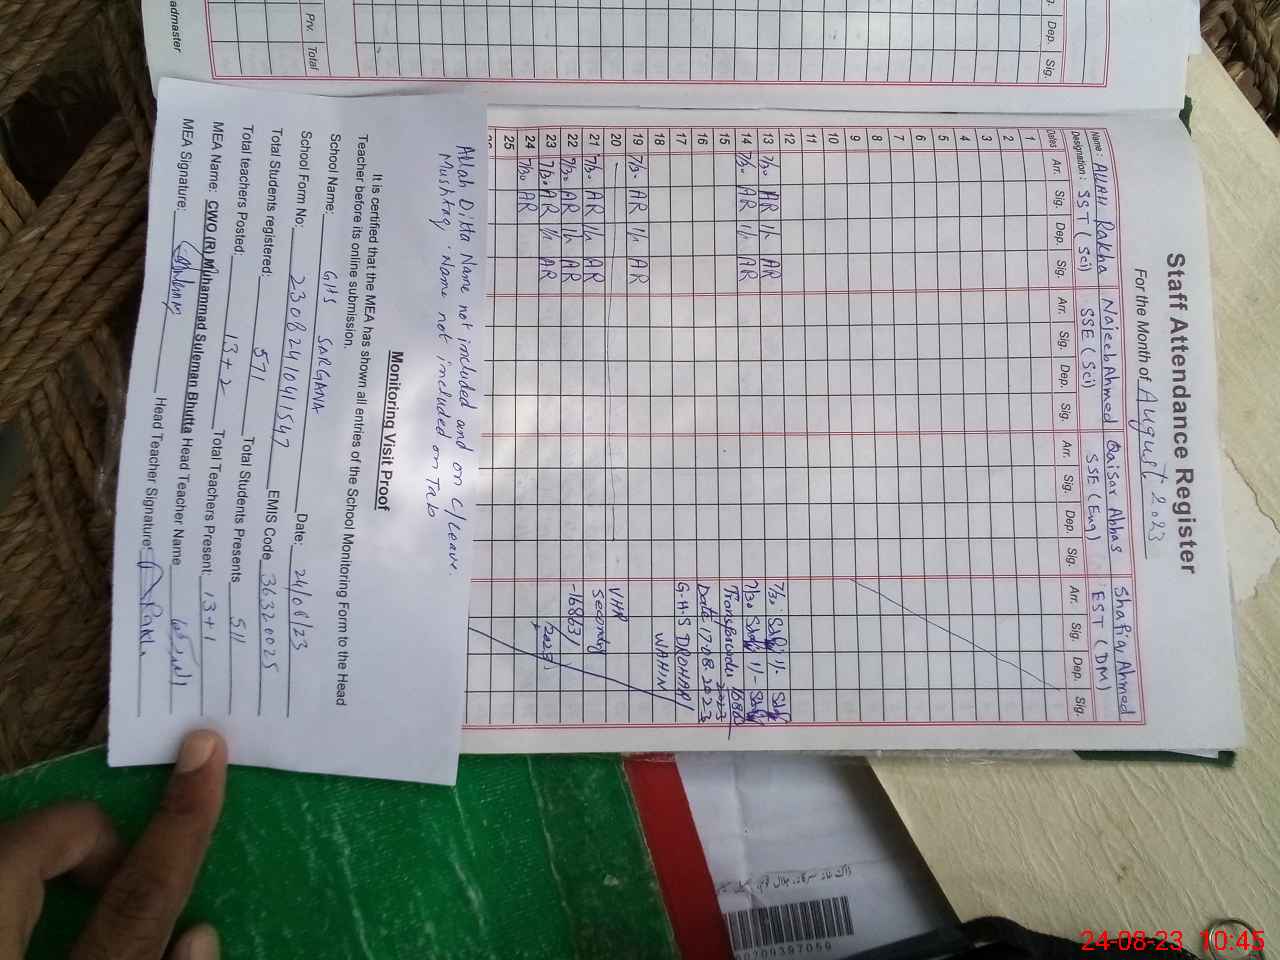 admaster
Prv.
Total
Dep.
Sig.
Staff Attendance Register
For the Month of August 2023
Name: Allah Rakha Najeeb Ahmed Qaisar Abbas Shafiq Ahmed
Designation: SST (Sci) SSE (Sci) SSE (Eng) EST (DM)
Dates Arr. Sig. Dep. Sig. Arr. Sig. Dep. Sig. Arr. Sig. Dep. Sig. Arr. Sig. Dep. Sig.
1
2
3
4
5
6
7
8
9
10
11
12
13 7/30 AR 1/- AR 7/30 1/-
14 7/30 AR 1/- AR 7/30 1/-
15
16 Date 17 08 2023
17 G.H.S DROHAR/
18 WAHIN
19 7/30 AR 1/- AR
20 VHR
21 7/30 AR 1/- AR Secondry
22 7/30 AR 1/- AR -16863/
23 7/30 AR 1/- AR 2023
24 7/30 AR
25
Allah Ditta Name not included and on C/Leave.
Mushtaq. Name not included on Tab
Monitoring Visit Proof
It is certified that the MEA has shown all entries of the School Monitoring Form to the Head
Teacher before its online submission.
School Name: GHS SARGANA
School Form No: 23082410411547 Date: 24/08/23
Total Students registered: 571 EMIS Code 36320025
Total teachers Posted: 13+2 Total Students Presents 511
MEA Name: CWO (R) Muhammad Suleman Bhutta Total Teachers Present: 13+1
MEA Signature: Head Teacher Name
Head Teacher Signature:
24-08-23 10:45